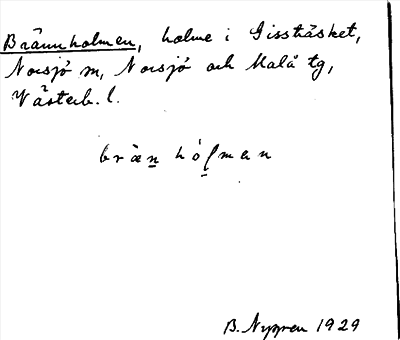 Brännholmen, holme i Gissträsket,
Norsjö sn, Norsjö och Malå tg,
Västerb. l.
bræn hólman
B. Nygren 1929